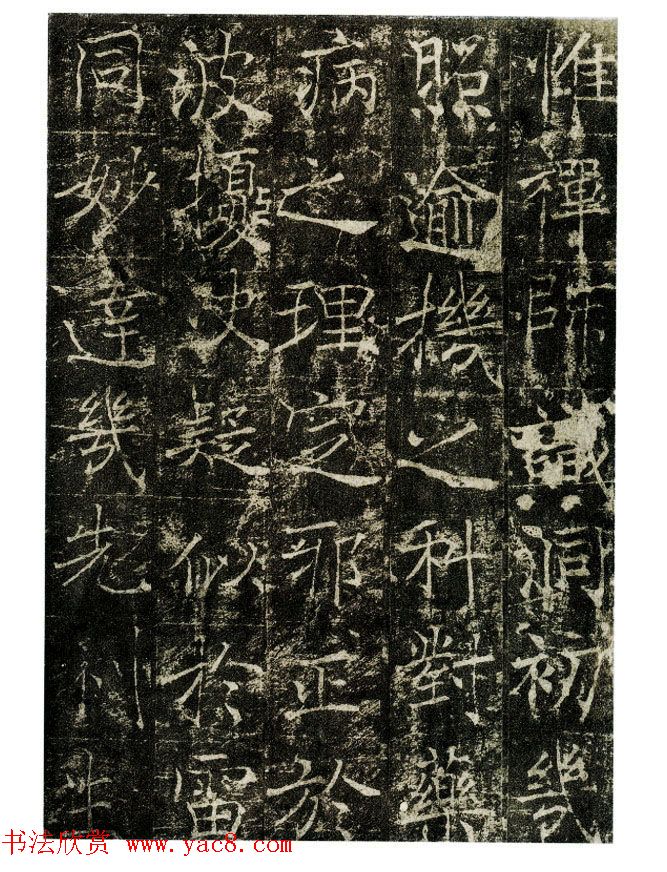 惟禪師識洞初幾
照逾機之科對藥
病之理定邪正於
波擾決疑似於雷
同妙達幾先利生
书法欣赏 www.yac8.com